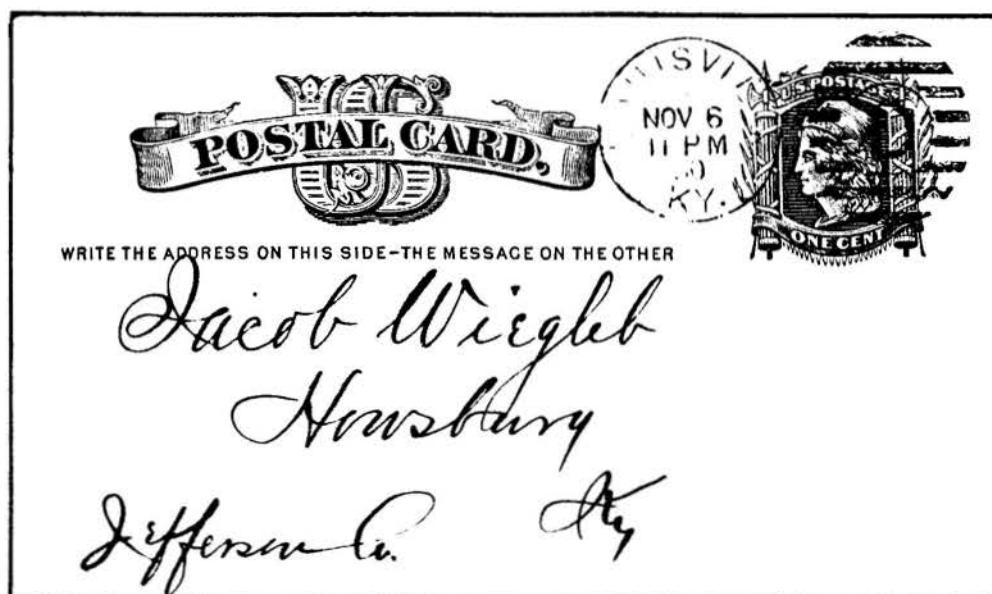 US
POSTAL CARD,
UISVI
NOV 6
11 PM
KY.
U.S. POSTAGE
ONE CENT
WRITE THE ADDRESS ON THIS SIDE–THE MESSAGE ON THE OTHER
Jacob Wiegleb
Howsbury
Jefferson Co. Ky